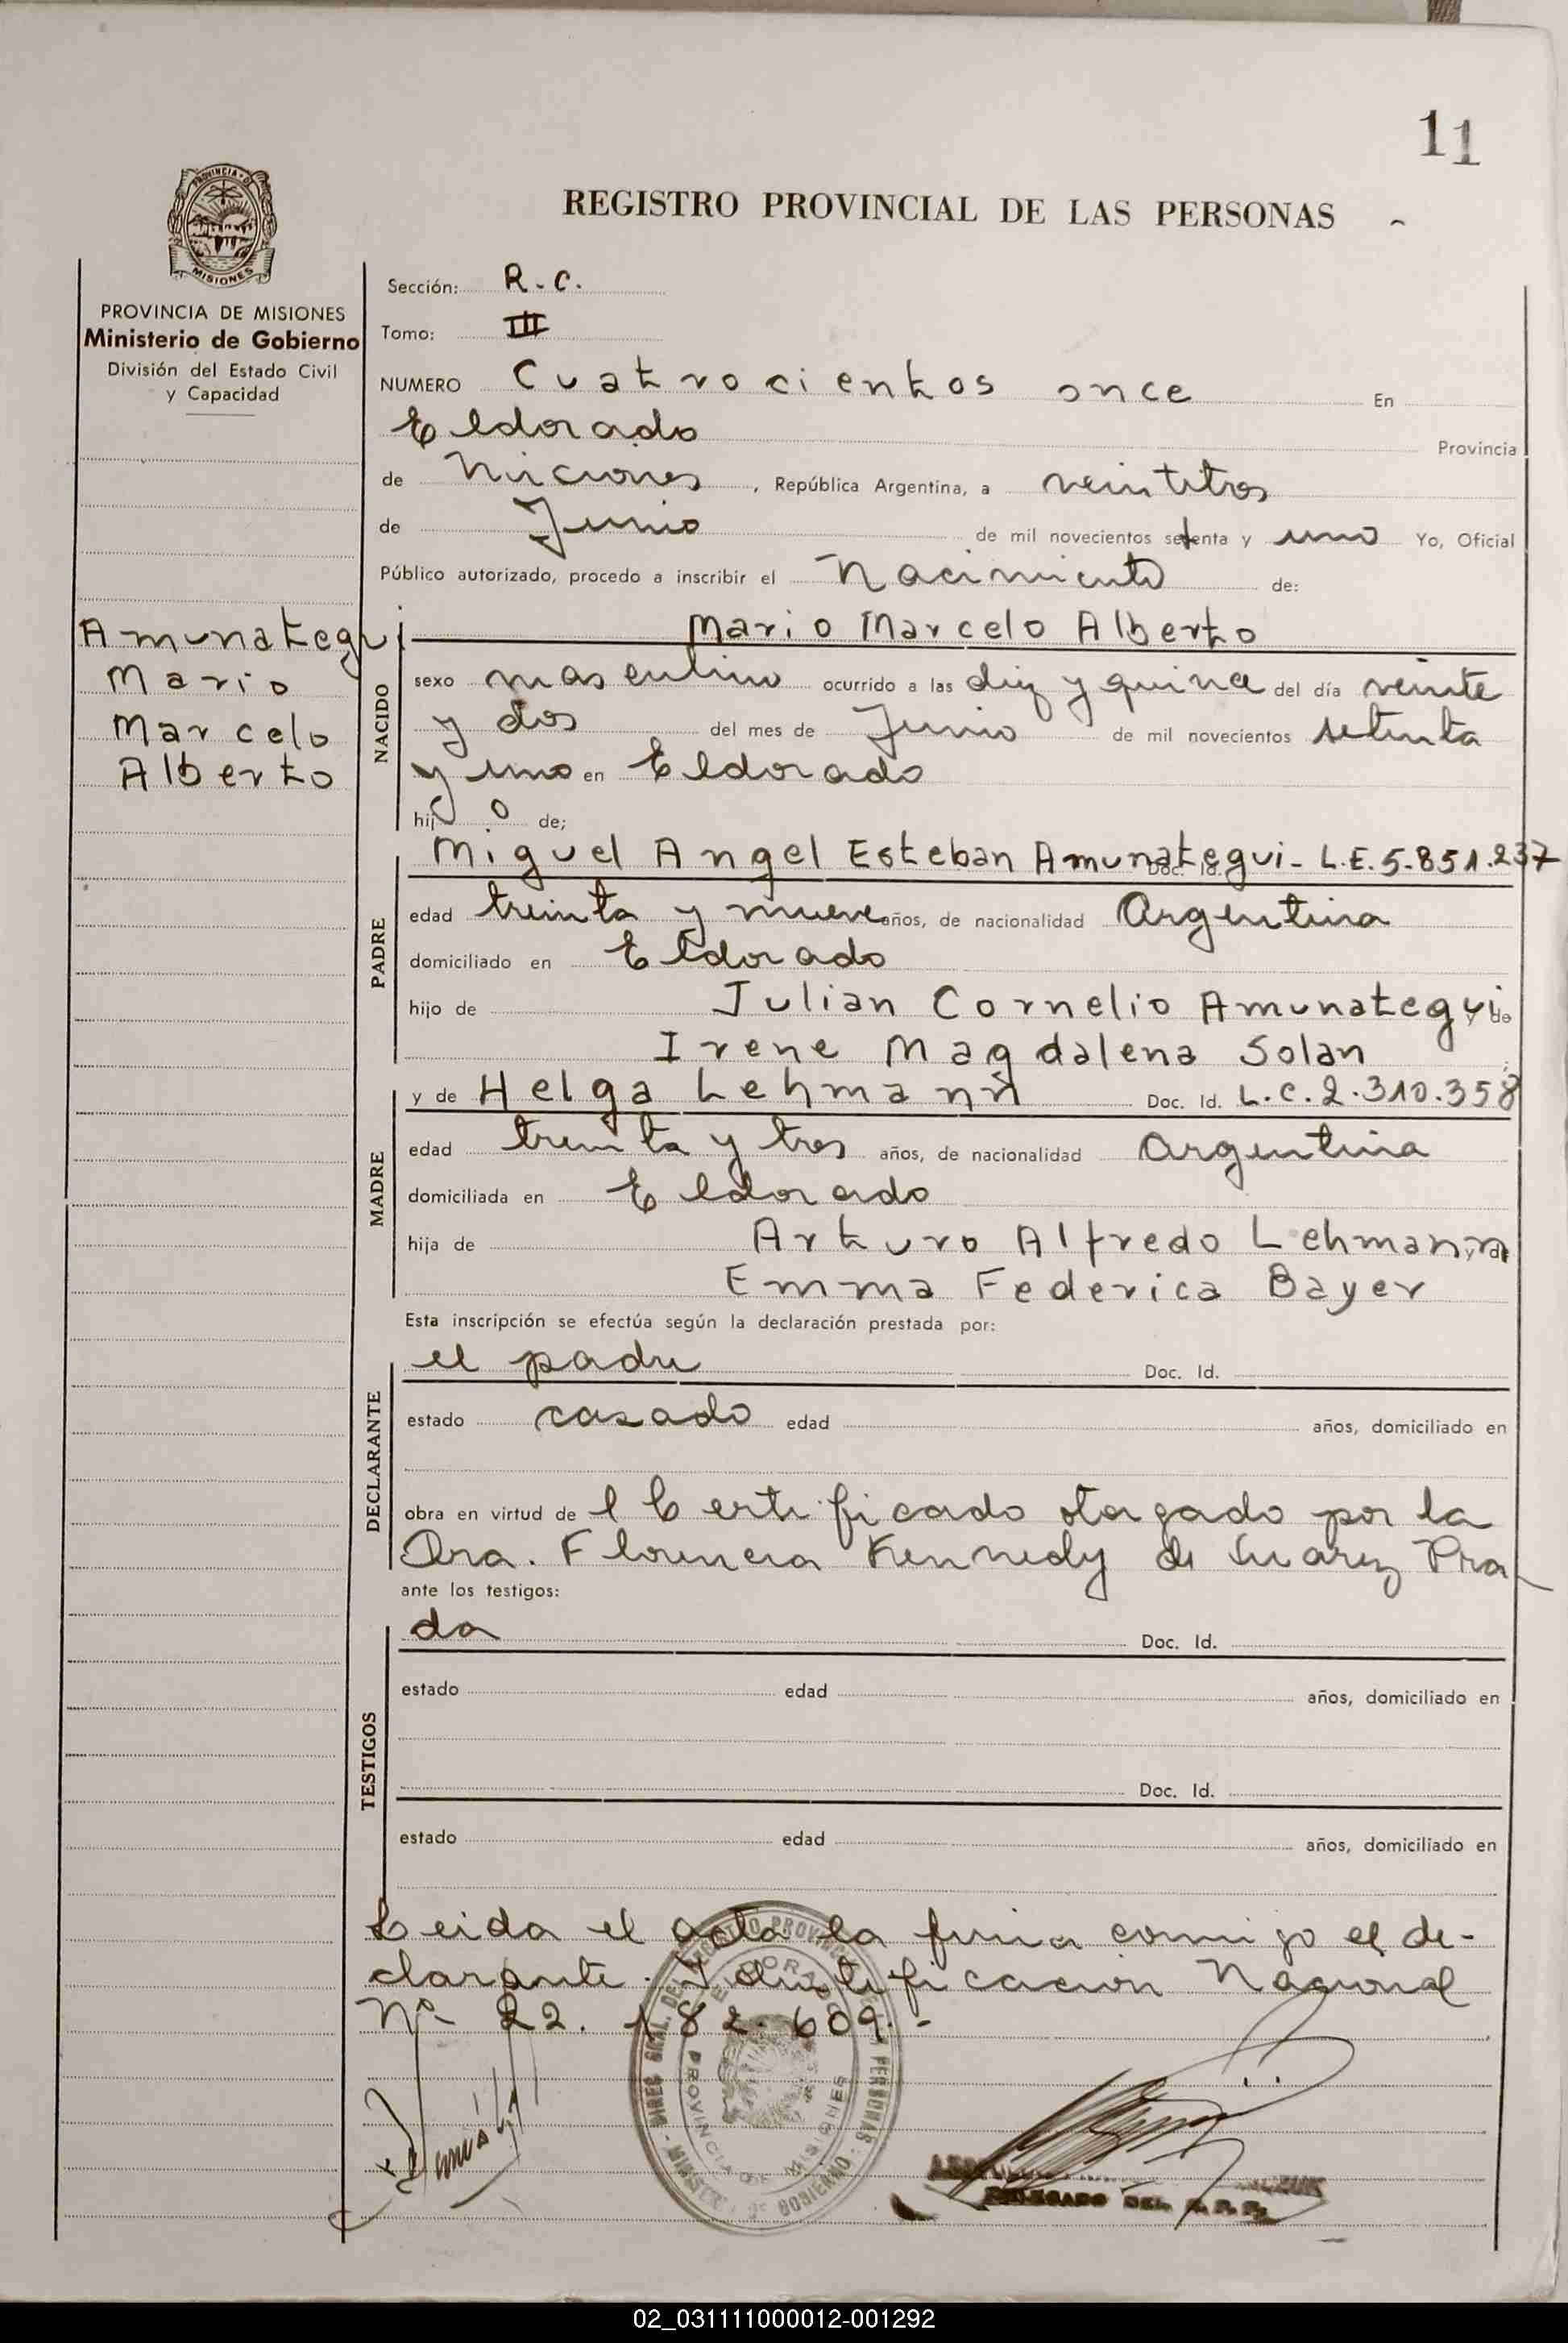 11
REGISTRO PROVINCIAL DE LAS PERSONAS
PROVINCIA DE MISIONES
PROVINCIA DE MISIONES
Ministerio de Gobierno
División del Estado Civil
y Capacidad
Amunategui
Mario
Marcelo
Alberto
Sección: R.C.
Tomo: III
NUMERO Cuatrocientos once En
Eldorado Provincia
de Miciones, República Argentina, a veintitres
de Junio de mil novecientos setenta y uno Yo, Oficial
Público autorizado, procedo a inscribir el Nacimiento de:
Mario Marcelo Alberto
NACIDO
sexo masculino ocurrido a las diez y quince del día veinte
y dos del mes de Junio de mil novecientos setenta
y uno en Eldorado
hijo de;
Miguel Angel Esteban Amunategui - Doc. Id. L.E. 5.851.237
PADRE
edad treinta y nueve años, de nacionalidad Argentina
domiciliado en Eldorado
hijo de Julian Cornelio Amunategui y de
Irene Magdalena Solan
y de Helga Lehmann Doc. Id. L.C. 2.310.358
MADRE
edad treinta y tres años, de nacionalidad Argentina
domiciliada en Eldorado
hija de Arturo Alfredo Lehmann y de
Emma Federica Bayer
Esta inscripción se efectúa según la declaración prestada por:
el padre Doc. Id.
DECLARANTE
estado casado edad años, domiciliado en
obra en virtud de l Certificado otorgado por la
Dra. Florencia Kennedy de Suarez Pra
ante los testigos:
da Doc. Id.
TESTIGOS
estado edad años, domiciliado en
Doc. Id.
estado edad años, domiciliado en
Leida el acta la firma conmigo el de-
clarante. Identificacion Nacional
Nº 22.182.609.-
DIREC. GRAL. DEL REGISTRO PROVINCIAL DE LAS PERSONAS
MINIST. DE GOBIERNO
ELDORADO
PROVINCIA DE MISIONES
DELEGADO DEL R.P.P.
02_031111000012-001292